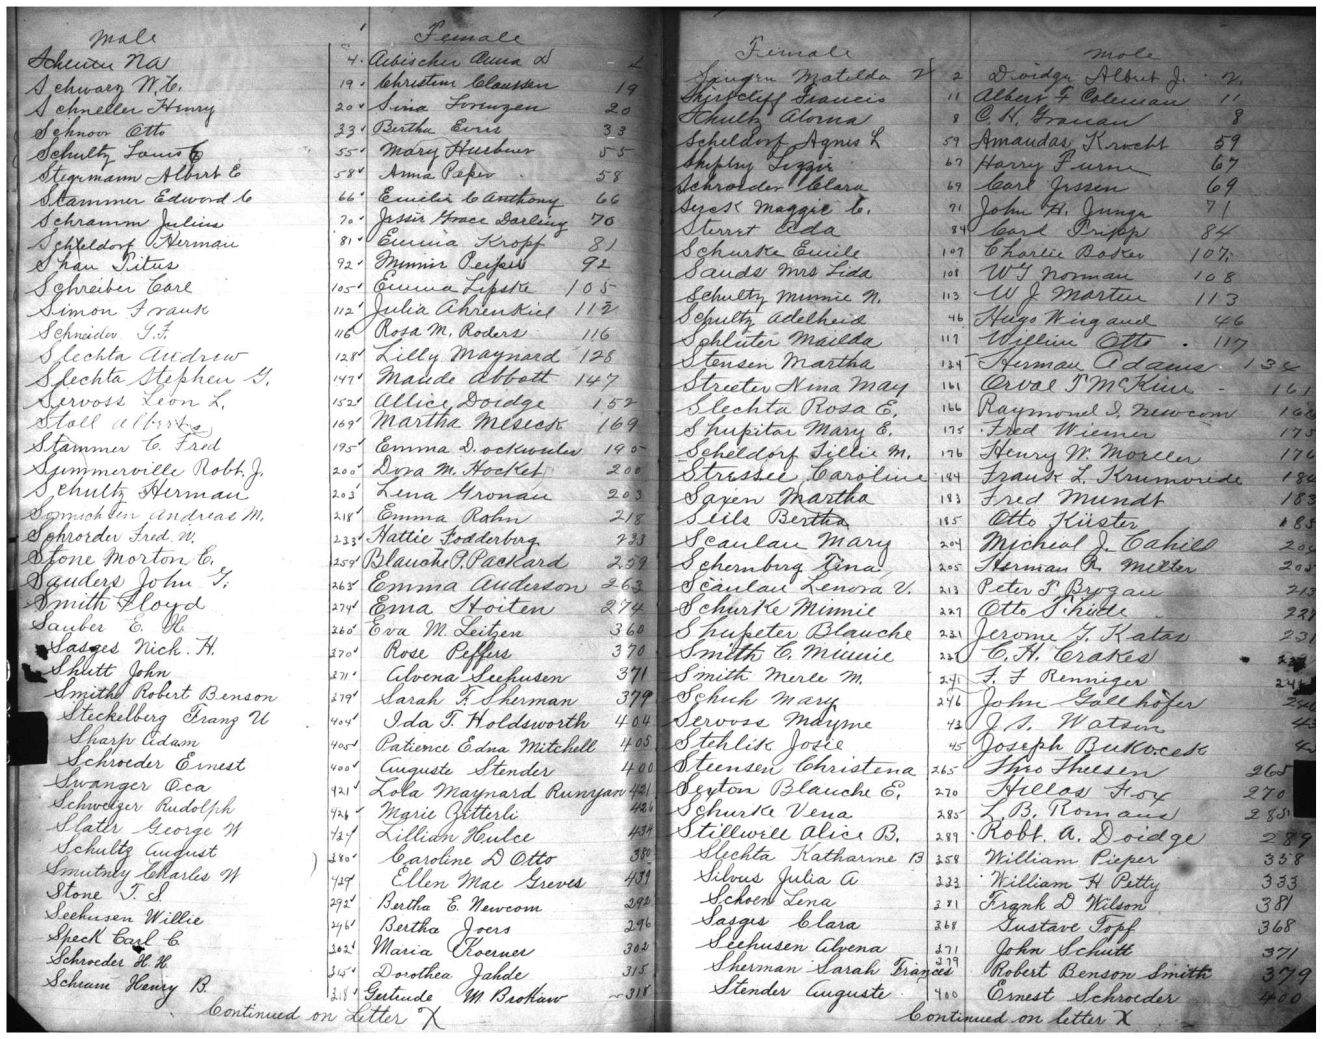 Male Female
Scheuer Na 4 Aebischer Anna L 4
Schwarz W. C. 19 Christine Claussen 19
Schneller Henry 20 Sina Lorenzen 20
Schnoor Otto 33 Bertha Evers 33
Schultz Louis C 55 Mary Huebner 55
Stegemann Albert E 58 Anna Peper 58
Stammer Edward C 66 Emilie C Anthony 66
Schramm Julius 70 Jessie Grace Darling 70
Scheldorf Herman 81 Emma Kropf 81
Shau Titus 92 Minnie Peiper 92
Schreiber Carl 105 Emma Lipske 105
Simon Frank 112 Julia Ahrenkiel 112
Schneider T. F. 116 Rosa M. Roders 116
Slechta Andrew 128 Lilly Maynard 128
Slechta Stephen G. 147 Maude Abbott 147
Servoss Leon L. 152 Allice Doidge 152
Stoll Albert 169 Martha Meseck 169
Stammer C. Fred 195 Emma Dockweiler 195
Summerville Robt. J. 200 Dora M. Hocket 200
Schultz Herman 203 Lena Gronau 203
Sonnichsen Andreas M. 218 Emma Rohn 218
Schroeder Fred. W. 233 Hattie Fodderberg 233
Stone Morton C. 259 Blauche P. Packard 259
Sauders John T. 263 Emma Anderson 263
Smith Floyd 274 Ema Hoiten 274
Sauber E. H 260 Eva M. Leitzen 360
Sasges Nich. H. 370 Rose Peffers 370
Shutt John 271 Alvena Seehusen 371
Smith Robert Benson 279 Sarah F. Sherman 379
Steckelberg Franz U 404 Ida T. Holdsworth 404
Sharp Adam 405 Patience Edna Mitchell 405
Schroeder Ernest 400 Auguste Stender 400
Swanger Oca 421 Lola Maynard Runyan 421
Schweiger Rudolph 426 Marie Zitterli 426
Slater George W 434 Lillian Hulce 434
Schultz August 380 Caroline D Otto 380
Smutney Charles W 439 Ellen Mae Greves 439
Stone T. S. 292 Bertha E. Newcom 292
Seehusen Willie 296 Bertha Joers 296
Speck Carl C. 302 Maria Koerner 302
Schroeder H. H. 315 Dorothea Jahde 315
Schram Henry B. 318 Gertrude M. Brokaw 318
Continued on Letter X
Female Male
Matilda 2 Doidge Albert J. 2
Shircliff Francis 11 Albert F Coleman 11
Schultz Alvina 8 C. H. Gronau 8
Scheldorf Agnes L 59 Amandas Knecht 59
Shipley Lizzie 67 Harry Furne 67
Schroeder Clara 69 Carl Jessen 69
Syck Maggie C. 71 John H. Junge 71
Sterret Ada 84 Carl Tripp 84
Schurke Emile 107 Charlie Baker 107
Sauds Mrs Lida 108 W. T. Norman 108
Schultz Minnie N. 113 W. J. Martin 113
Schultz Adelheid 46 Hugo Wiegand 46
Schlüter Mailda 117 William Otto 117
Stensen Martha 134 Herman Adams 134
Streeter Nina May 161 Orval T McKim 161
Slechta Rosa E. 166 Raymond I. Newcom 166
Shupitar Mary E. 175 Fred Wiemer 175
Scheldorf Tillie M. 176 Henry W. Moeller 176
Stressee Caroline 184 Frank L. Krumvide 184
Saxen Martha 183 Fred Mundt 183
Seils Bertha 185 Otto Küster 185
Scanlan Mary 204 Micheal J. Cahill 204
Schernberg Tina 205 Herman A. Melter 205
Scanlan Lenora V. 213 Peter F. Brogan 213
Schurke Minnie 227 Otto Thiede 227
Shupeter Blauche 231 Jerome G. Katas 231
Smith C. Minnie C. H. Crakes
Smith Merle M. 241 F. F Renniger 241
Schuh Mary 246 John Gollhöfer 246
Servoss Mayme 43 J. S. Watson 43
Stehlik Josie 45 Joseph Bukocek 45
Steensen Christena 265 Theo Theesen 265
Sexton Blauche E. 270 Hillas Fox 270
Schurke Vena 285 L. B. Romans 285
Stillwell Alice B. 289 Robt. A. Doidge 289
Slechta Katharine B 358 William Pieper 358
Silvus Julia A 333 William H Petty 333
Schoen Lena 381 Frank D Wilson 381
Sasges Clara 368 Gustave Topf 368
Seehusen Alvena 371 John Schutt 371
Sherman Sarah Frances 379 Robert Benson Smith 379
Stender Auguste 400 Ernest Schroeder 400
Continued on letter X